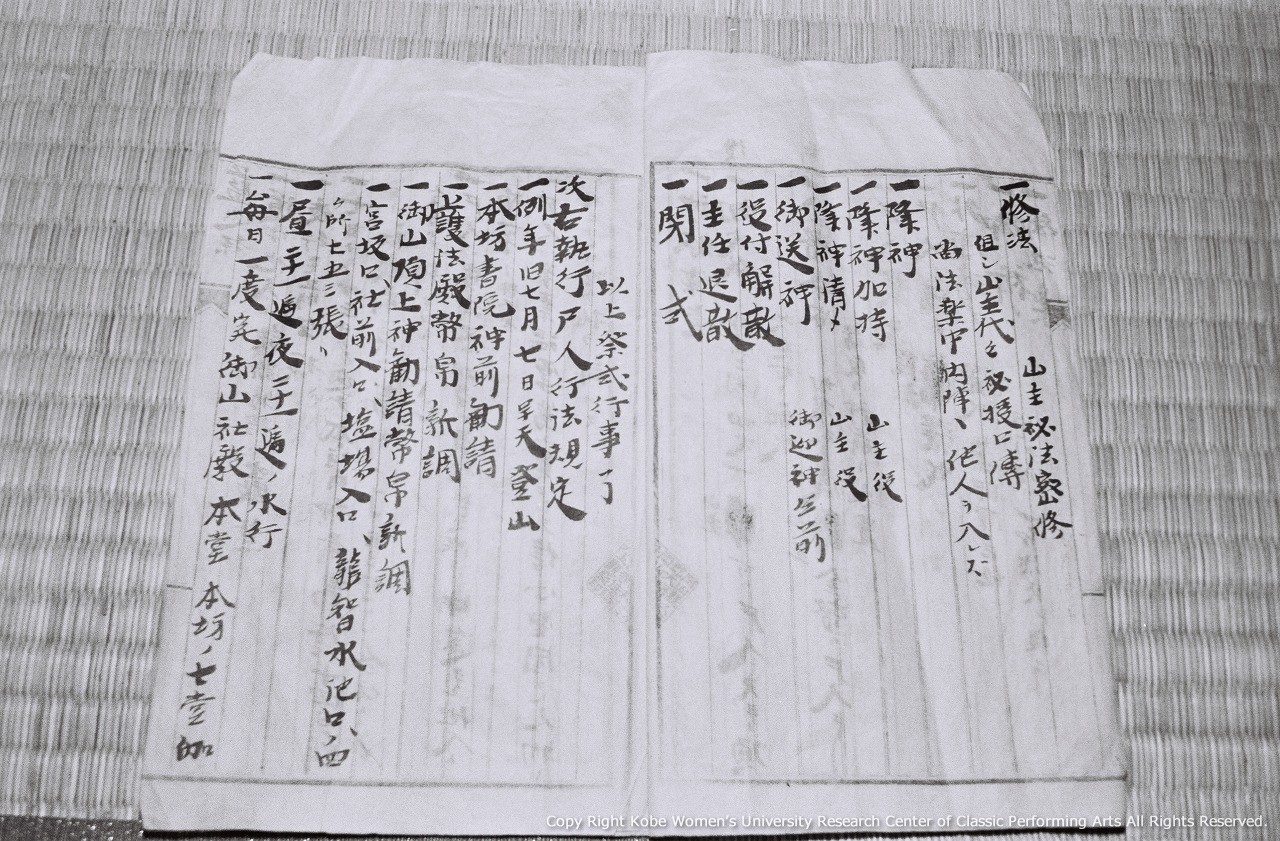 一修法　山主秘法密修
但シ山主代々秘授口傳
尚法楽中内陣ヘ他人ヲ入レズ
一降神
一降神加持　山主役
一降神清メ　山主役
一御送神　御迎神仝前
一役付解散
一主任退散
一閉式
以上祭式行事了
次右執行戸人行法規定
一例年旧七月七日早天登山
一本坊書院神前勧請
一護法殿幣帛新調
一御山頂上神勧請幣帛新調
一宮坂口、社前入口、塩場入口、龍智水池口、四
ヶ所七五三張ヽ
一昼二十一遍夜二十一遍ノ水行
一毎日一度宛御山社殿本堂本坊ノ七堂伽
Copy Right Kobe Women's University Research Center of Classic Performing Arts All Rights Reserved.